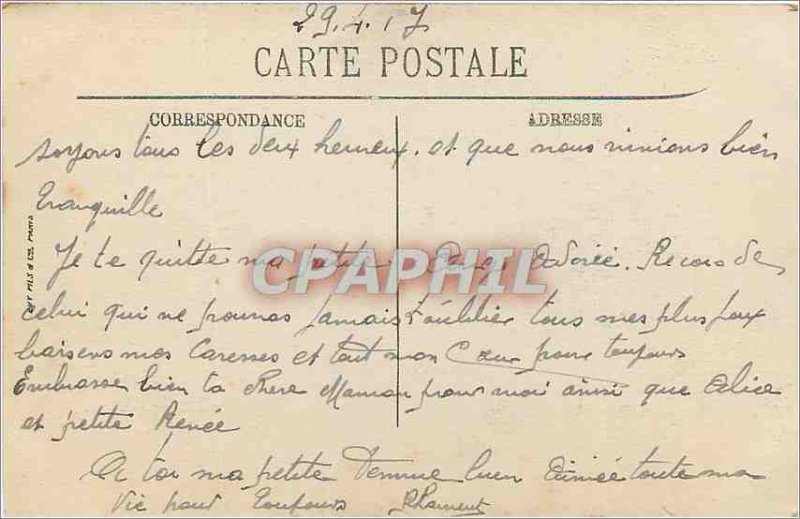 29.4.17
CARTE POSTALE
CORRESPONDANCE
ADRESSE
soyons tous les deux heureux. et que nous vivions bien
tranquille
Je te quitte ma petite Adorée. Recois de
celui qui ne pourras jamais t'oublier tous mes plus doux
baisers mes Caresses et tout mon Cœur pour toujours
Embrasse bien ta chère Maman pour moi ainsi que Alice
et petite Renée
A toi ma petite femme bien Aimée toute ma
Vie pour toujours
CPAPHIL